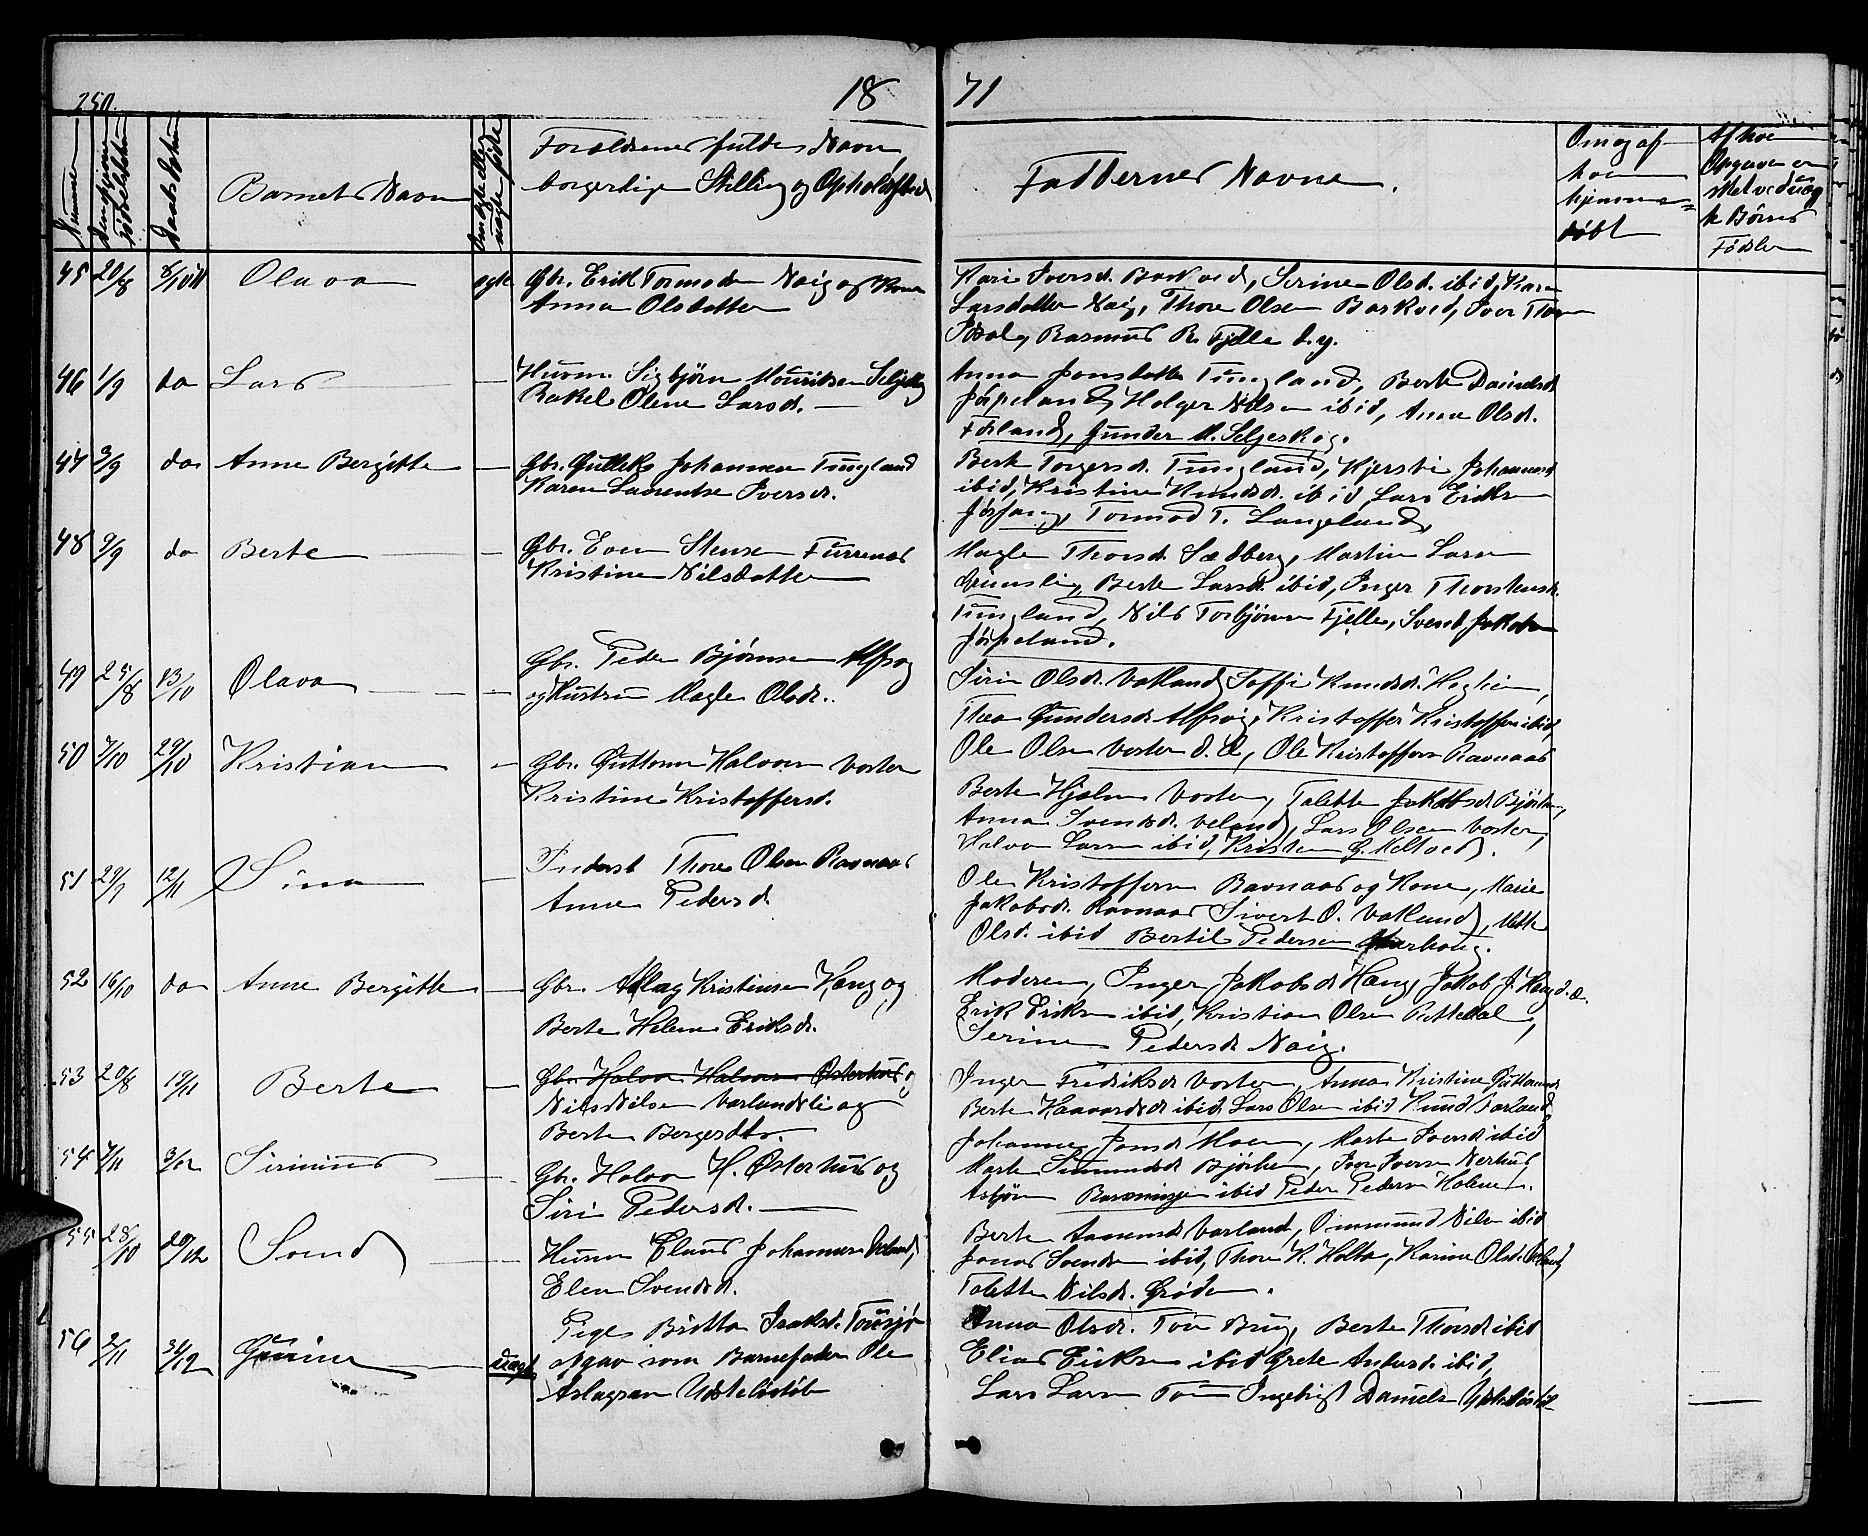 250.
18 71
Nummer
Barnets Navn
Forældrenes fulde Navn
borgerlige Stilling og Opholdssted
Faddernes Navne.
Om og af
hvem
hjemme=
døbt
45 20/8 8/10 Olava egte Gbr. Erik Tormodsen Naig og Kone
Anna Olsdatter
Kari Iversd. Barkved, Serine Olsd. ibid, Karen
Larsdatter Naig, Thore Olsen Barkved, Iver Thore
Rasmus R. Fjelle d.y.
46 1/9 do Lars — Husm. Sigbjørn Mouritsen Seljeskog
Rakel Olene Larsd. —
Anna Jonsdatter Tungland, Berte Danielsd.
Jørpeland, Holger Nilsen ibid, Anne Olsd.
Førland, Gunder M. Seljeskog.
47 3/9 do Anne Bergitte — Gbr. Gulleks Johannesen Tungland
Karen Laurentse Iversd.
Berte Torgersd. Tungland, Kjersti Johannesd
ibid, Kristine Knudsd. ibid Lars Eriks
Jøssang, Tormod T. Langeland,
48 9/9 do Berte — Gbr. Even Stensen Furrenes
Kristine Nilsdatter
Magle Thorsd. Sædberg, Martin Larsen
Grimsli, Berte Larsd. ibid, Inger Thorstensd.
Tungland, Nils Torbjørnsen Fjelle, Svend Jakobsen
Jørpeland.
49 25/8 13/10 Olava — Gbr. Peder Bjørnsen Alfsog
og Hustru Magle Olsd.
Siri Olsd. Vatland, Soffie Knudsd. Heglien,
Thea Gundersd. Alfsog, Kristoffer Kristoffersen ibid,
Ole Olsen Voster d. Æ, Ole Kristoffersen Ravnaas
50 7/10 29/10 Kristian — Gbr. Guttorm Halvorsen Voster
Kristine Kristoffersd.
Berte Hjelm Voster, Talette Jakobsd. Bjørheim,
Anna Svendsd. Veland, Lars Olsen Voster,
Halvor Larsen ibid, Kristen G. Meltved.
51 29/9 12/11 Sina — Inderst Thore Olsen Ravnaas
Anne Pedersd.
Ole Kristoffersen Ravnaas og Kone, Marie
Jakobsd. Ravnaas Sivert O. Vatland, Mette
Olsd. ibid Bertil Pedersen
52 16/10 do Anne Bergitte — Gbr. Aslag Kristensen Haug og
Berte Helene Eriksd.
Moderen, Inger Jakobsd. Haug, Jakob J. Haug d.æ.
Erik Eriksen ibid, Kristian Olsen Pettedal,
Serine Pedersd. Naig.
53 20/8 19/11 Berte — Gbr. Halvor Halvorsen Østerhus og
Nils Nilsen Varlandsli og
Berte Bergesdtr.
Inger Fredriksd. Voster, Anna Kristine Guttormsd
Berte Haavardsd. ibid, Lars Olsen ibid Knud Varland,
54 7/11 3/12 Sirinius — Gbr. Halvor H. Østerhus og
Siri Pedersd. —
Johanne Jonsd. Moen, Marte Iversd. ibid
Marte Simonsd. Bjørheim, Iver Iversen Nerhus
Asbjørn Rasmussen ibid Peder Pedersen Holene.
55 28/10 26/12 Svend — Husm Claus Johannesen Veland,
Elen Svendsd.
Berte Aamundsd. Varland, Ommund Nilsen ibid
Jonas Svendsen ibid, Thore K. Holta, Karine Olsd. Veland
Talette Nilsd. Grøden.
56 2/11 31/12 Gunine uægte Pige Britta Isaksd. Tousjø
opgav som Barnefader Ole
Aslagsen Udstølestøl
Anna Olsd. Tou Brug, Berte Thorsd. ibid
Elias Eriksen ibid Grete Andersd. ibid,
Lars Larsen Tou Ingebrigt Danielsen